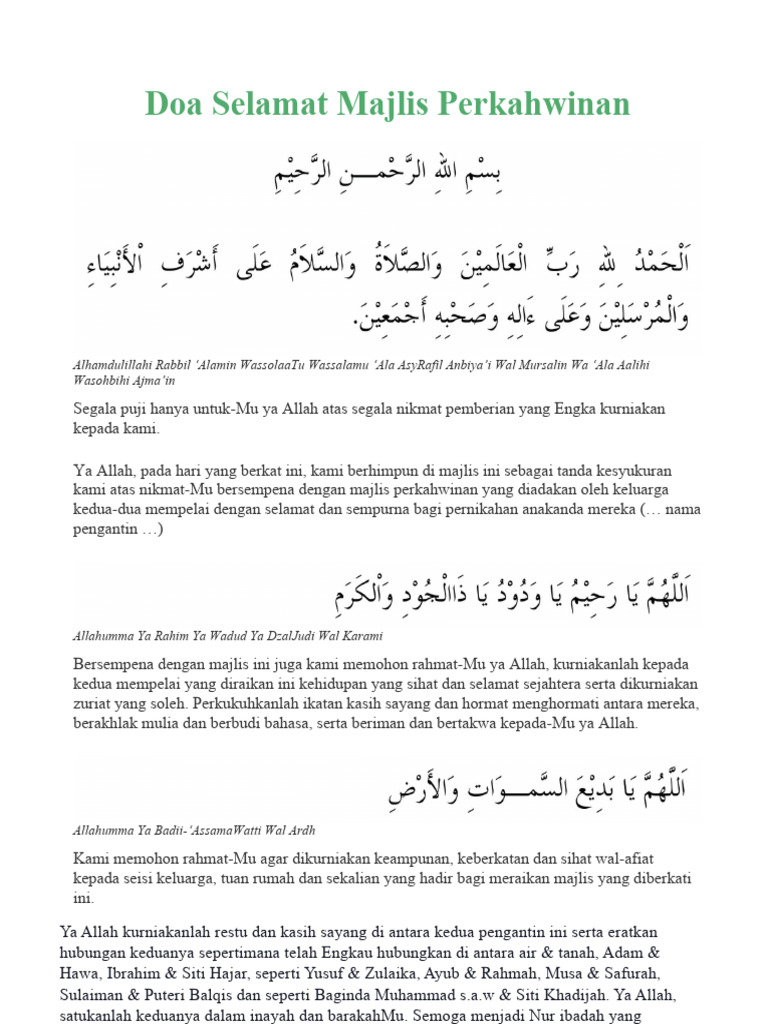 Doa Selamat Majlis Perkahwinan
بِسْمِ اللهِ الرَّحْمـــنِ الرَّحِيْمِ
اَلْحَمْدُ لِلهِ رَبِّ الْعَالَمِيْنَ وَالصَّلاَةُ وَالسَّلاَمُ عَلَى أَشْرَفِ الْأَنْبِيَاءِ
وَالْمُرْسَلِيْنَ وَعَلَى ءَالِهِ وَصَحْبِهِ أَجْمَعِيْنَ.
Alhamdulillahi Rabbil ‘Alamin WassolaaTu Wassalamu ‘Ala AsyRafil Anbiya’i Wal Mursalin Wa ‘Ala Aalihi
Wasohbihi Ajma’in
Segala puji hanya untuk-Mu ya Allah atas segala nikmat pemberian yang Engka kurniakan
kepada kami.
Ya Allah, pada hari yang berkat ini, kami berhimpun di majlis ini sebagai tanda kesyukuran
kami atas nikmat-Mu bersempena dengan majlis perkahwinan yang diadakan oleh keluarga
kedua-dua mempelai dengan selamat dan sempurna bagi pernikahan anakanda mereka (… nama
pengantin …)
اَللَّهُمَّ يَا رَحِيْمُ يَا وَدُوْدُ يَا ذَاالْجُوْدِ وَاْلكَرَمِ
Allahumma Ya Rahim Ya Wadud Ya DzalJudi Wal Karami
Bersempena dengan majlis ini juga kami memohon rahmat-Mu ya Allah, kurniakanlah kepada
kedua mempelai yang diraikan ini kehidupan yang sihat dan selamat sejahtera serta dikurniakan
zuriat yang soleh. Perkukuhkanlah ikatan kasih sayang dan hormat menghormati antara mereka,
berakhlak mulia dan berbudi bahasa, serta beriman dan bertakwa kepada-Mu ya Allah.
اَللَّهُمَّ يَا بَدِيْعَ السَّمـــوَاتِ وَالأَرْضِ
Allahumma Ya Badii-‘AssamaWatti Wal Ardh
Kami memohon rahmat-Mu agar dikurniakan keampunan, keberkatan dan sihat wal-afiat
kepada seisi keluarga, tuan rumah dan sekalian yang hadir bagi meraikan majlis yang diberkati
ini.
Ya Allah kurniakanlah restu dan kasih sayang di antara kedua pengantin ini serta eratkan
hubungan keduanya sepertimana telah Engkau hubungkan di antara air & tanah, Adam &
Hawa, Ibrahim & Siti Hajar, seperti Yusuf & Zulaika, Ayub & Rahmah, Musa & Safurah,
Sulaiman & Puteri Balqis dan seperti Baginda Muhammad s.a.w & Siti Khadijah. Ya Allah,
satukanlah keduanya dalam inayah dan barakahMu. Semoga menjadi Nur ibadah yang